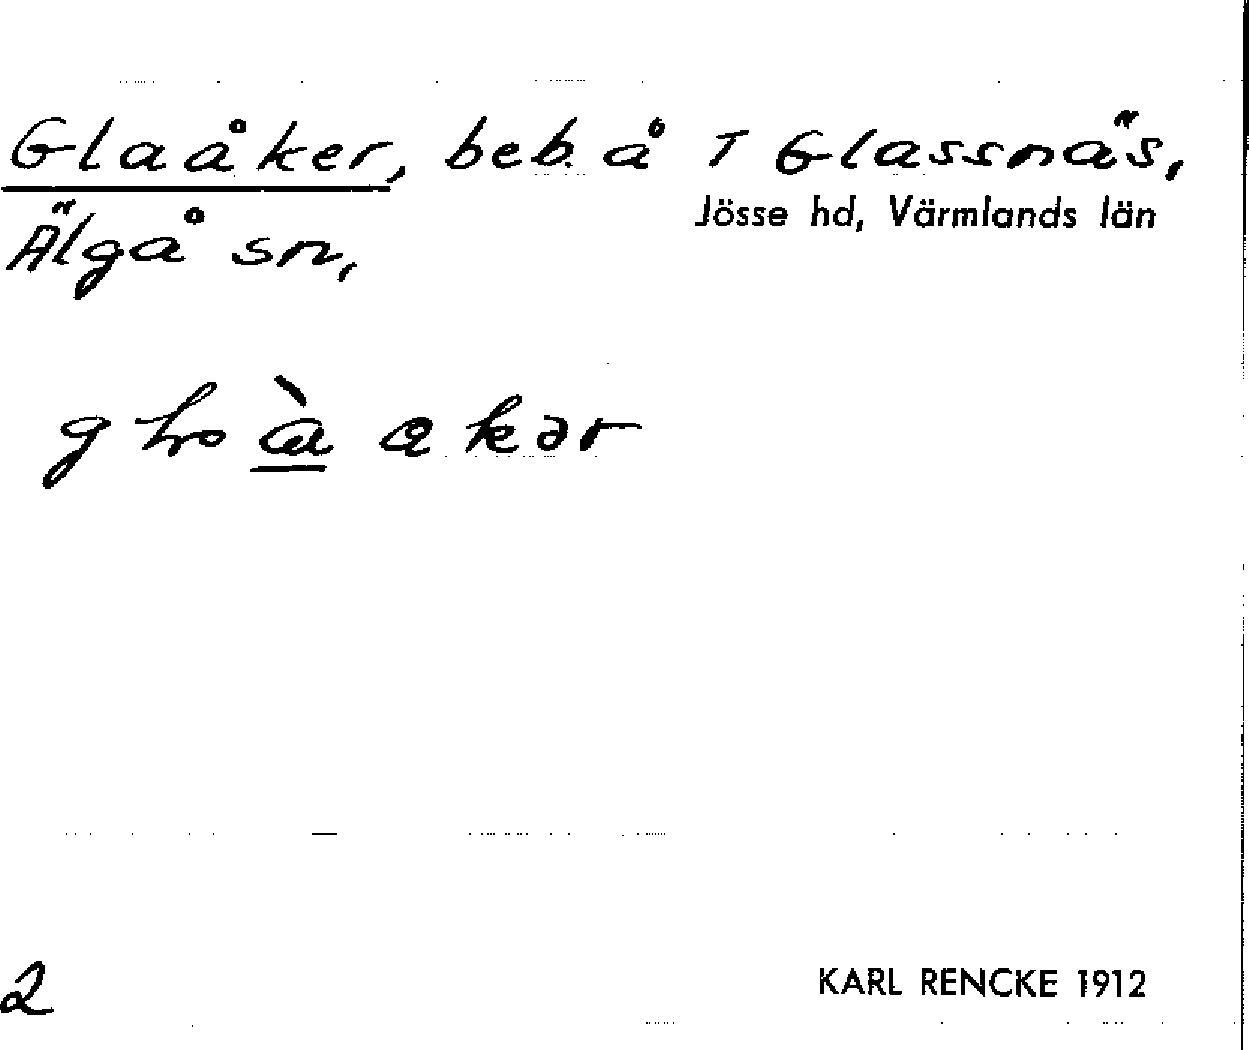 Glaåker, beb. å T Glassnäs,
Jösse hd, Värmlands län
Älgå sn,
2
KARL RENCKE 1912